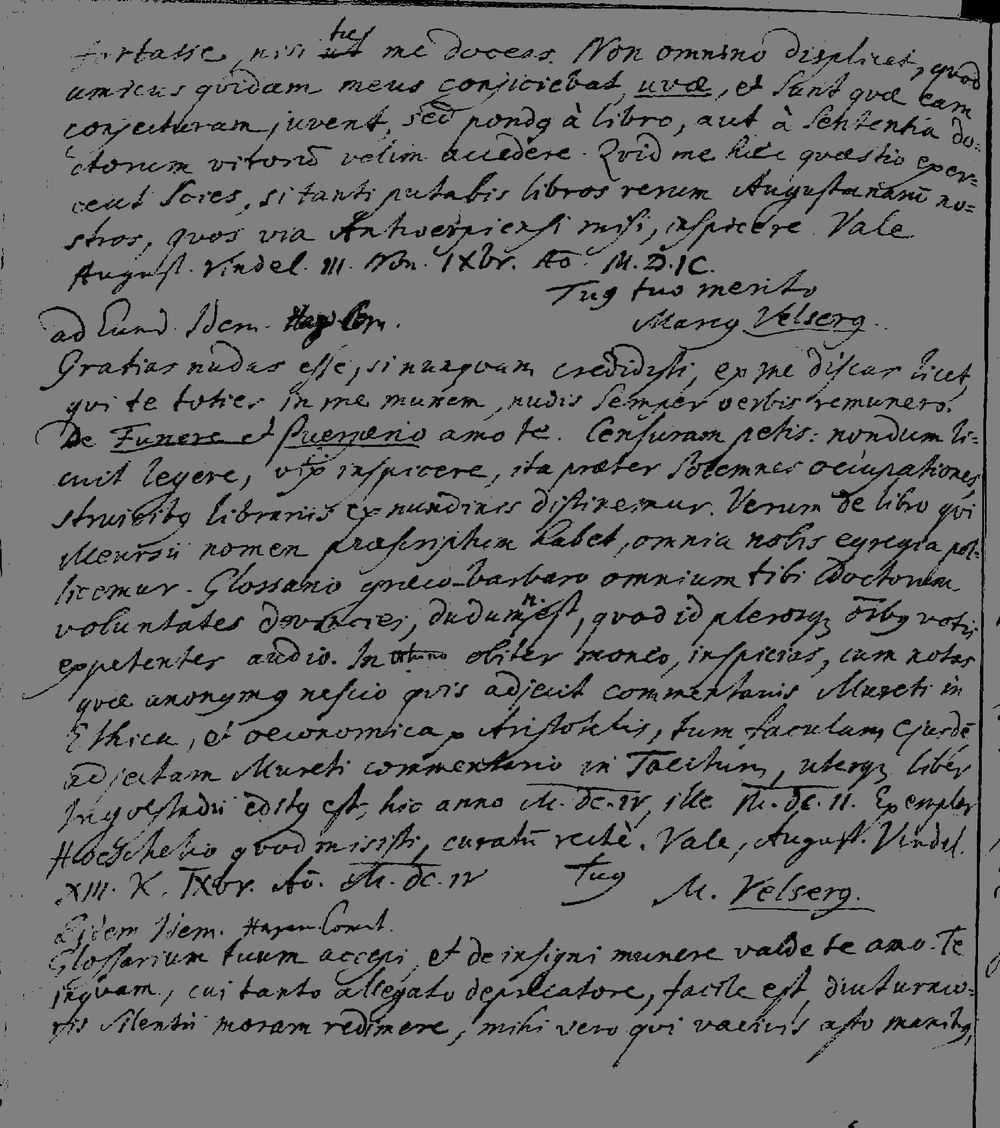 fortasse, nisi tu me doceas. Non omnino displicet, quod
amicus quidam meus conjiciebat, uvæ, et sunt quæ eam
conjecturam juvent, sed pondq à libro, aut à sententia do-
ctorum virorū velim accedere. Qvid me hæc quæstio exer-
ceat scies, si tanti putabis libros rerum Augustanarū no-
stros, qvos via Antwerpiensi misi, inspicere. Vale
August. Vindel. III. Non. IXbr. Ao. M.D.IC.
Tuq tuo merito
Marcq Velserq.
ad Eund. Idem.
Gratias nudas esse, si nunqvam credidisti, ex me discas licet,
qvi te toties in me munem, nudis semper verbis remunero.
De Funere et Puerperio amo te. Censuram petis: nondum li-
cuit legere, vix inspicere, ita præter solemnes occupationes,
libris ex nundinis distinemur. Verum de libro qvi
Meursii nomen præscriptum habet, omnia nobis egregia pol-
licemur. Glossario græco-barbaro omnium tibi Doctorum
voluntates devincies, dudum n. est, quod id plerosq orbq votis
expetentes audio. In obiter moneo, inspicias, cum notas
qvæ anonymq nescio qvis adjecit commentariis Mureti in
Ethica, et oeconomica Aristotelis, tum faculam ejusdē
adjectam Mureti commentario in Tacitum, uterq liber
Ingolstadii editq est, hic anno M.DC.IV, ille M.DC.II. Exemplar
Hoeschelio qvod misisti, curatū rectè. Vale, August. Vindel.
XIII. K. IXbr. Aō. M.DC.IV Tuq M. Velserq.
Eidem Idem. Hagam Comit.
Glossarium tuum accepi, et de insigni munere valde te amo. Te
inqvam, cui tanto allegato deprecatore, facile est, diuturnio-
ris silentii moram redimere, mihi vero qvi vacivis asto manibq,